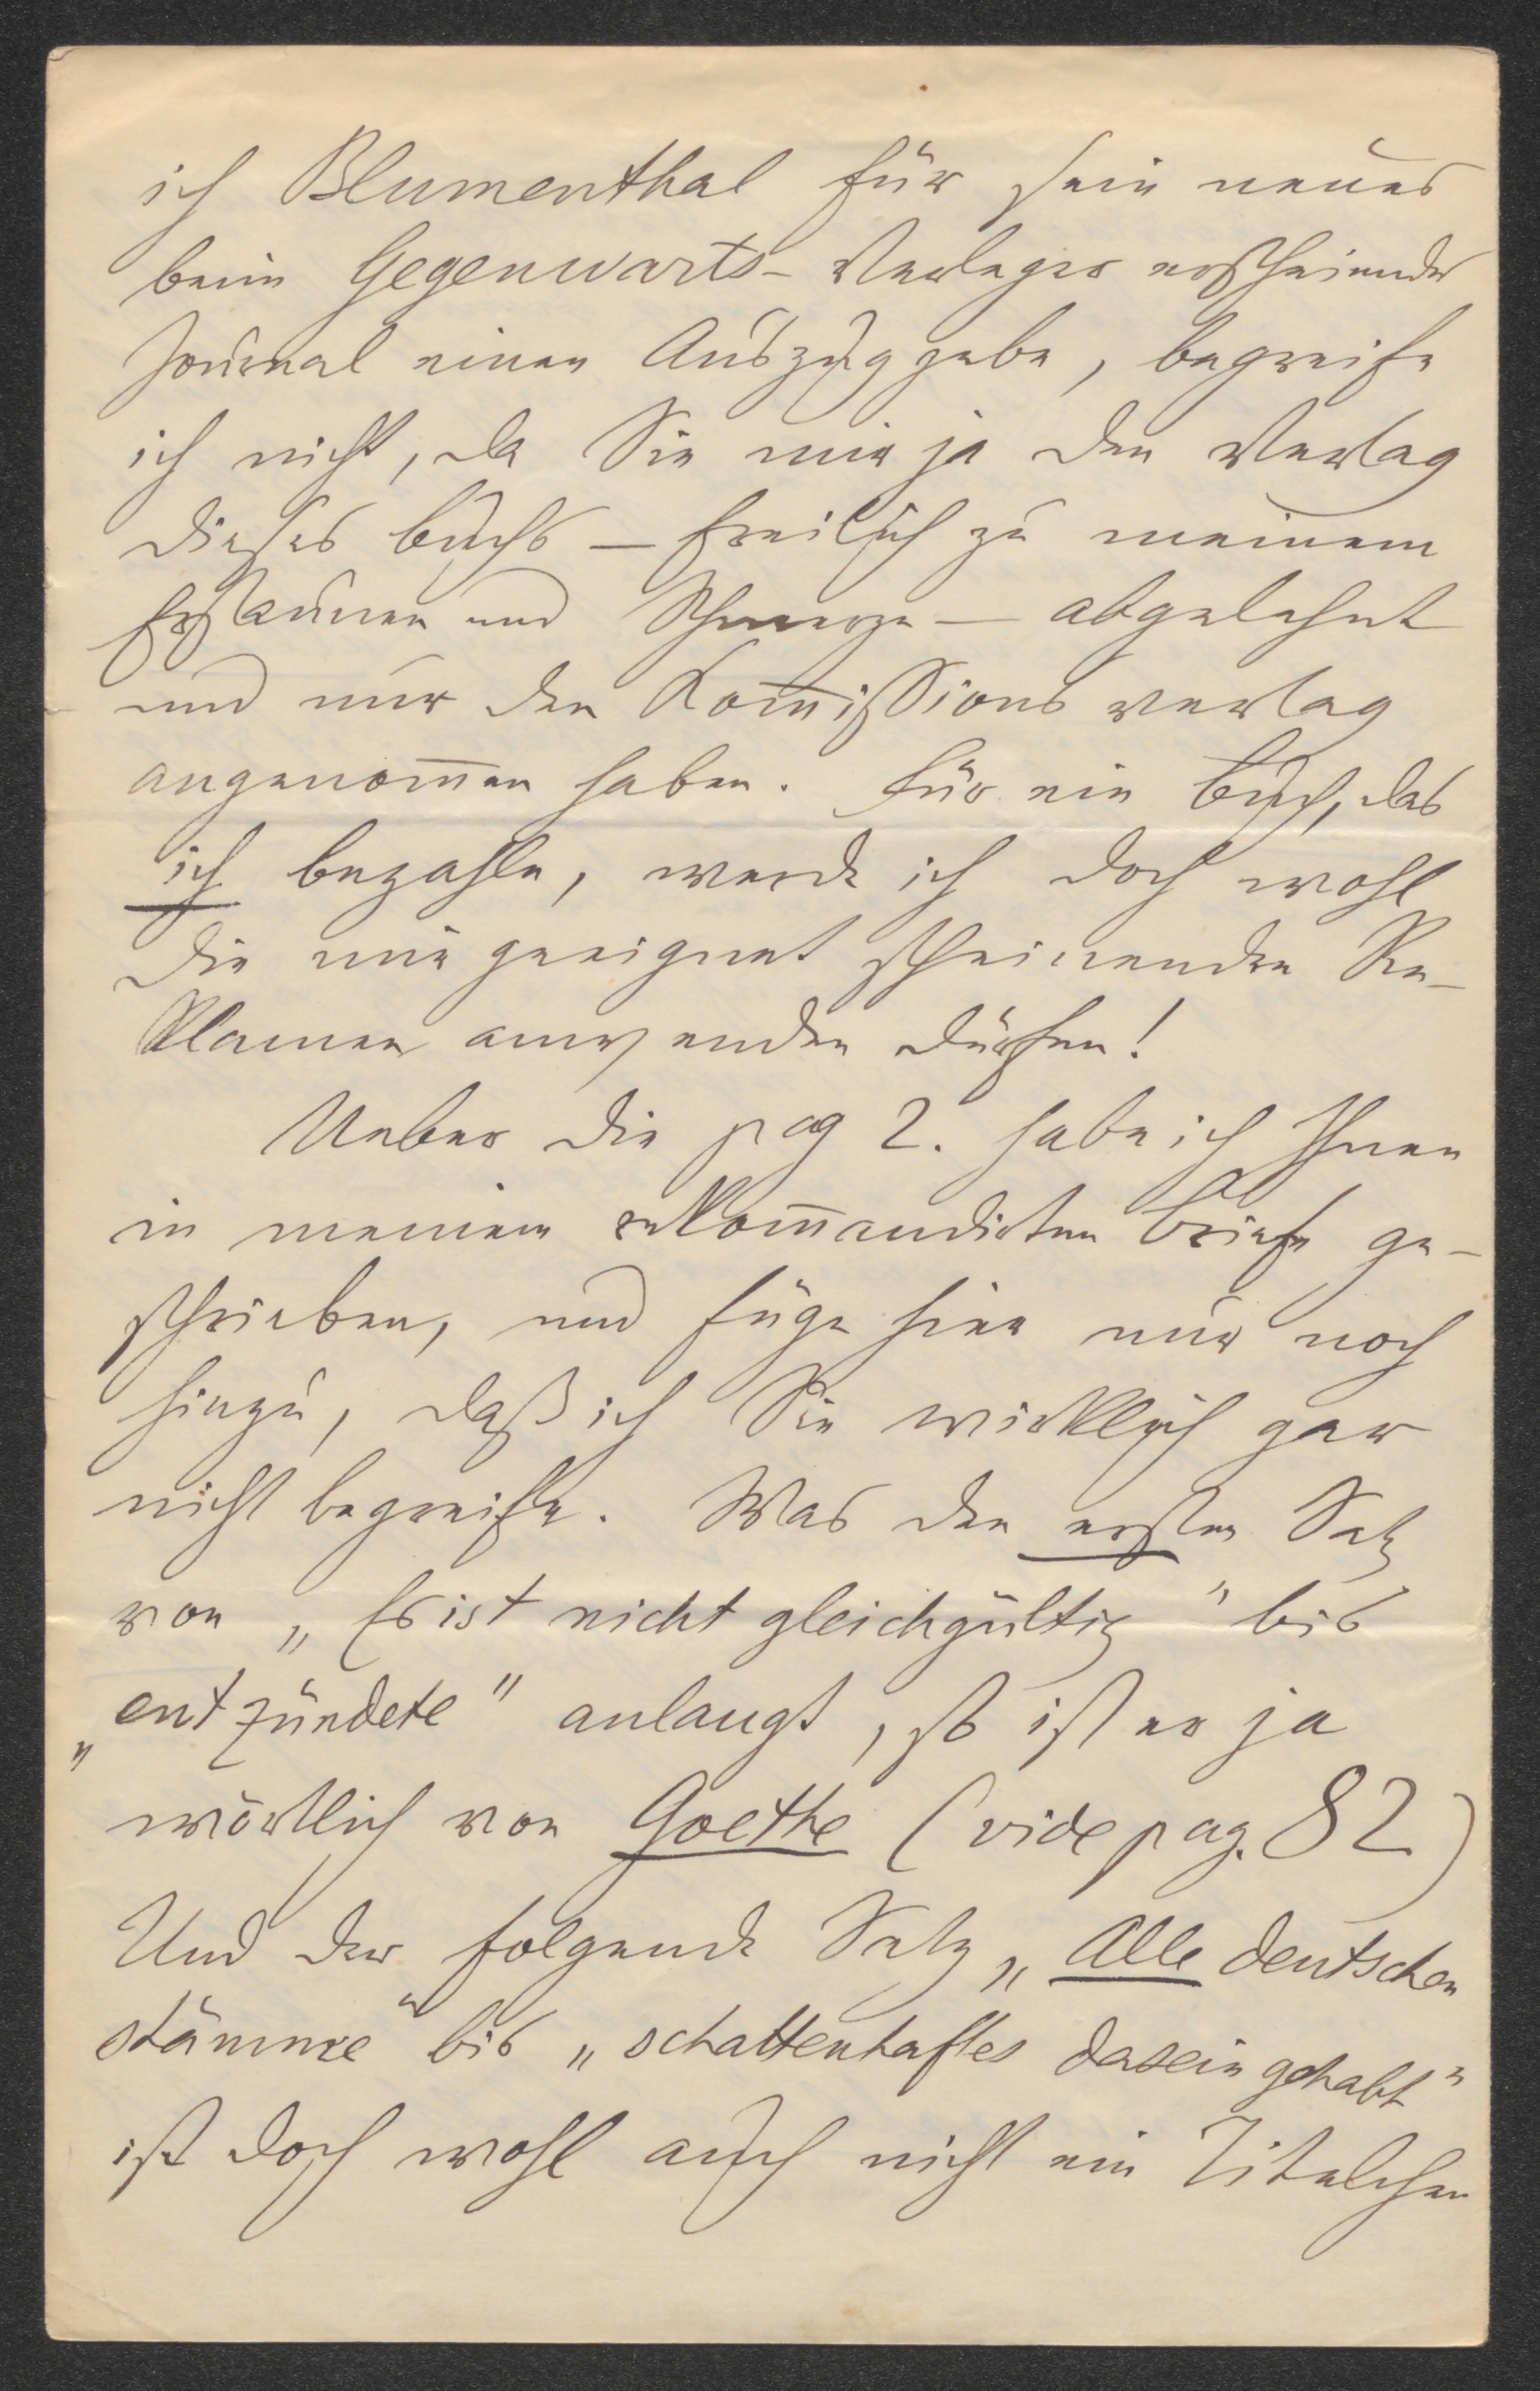 ich Blumenthal für sein neues
beim Gegenwarts-Verleger erscheinendes
Journal einen Auszug gebe, begreife
ich nicht, da Sie mir ja den Verlag
dieses Buchs – freilich zu meinem
Erstaunen und Schmerze – abgelehnt
und nur den Kom̅issionsverlag
angenom̅en haben. Für ein Buch, das
ich bezahle, werde ich doch wohl
die mir geeignet scheinenden Re-
klamen anwenden dürfen!
Ueber die pag 2. habe ich Ihnen
in meinem rekom̅andirten Briefe ge-
schrieben, und füge hier nur noch
hinzu, daß ich Sie wirklich gar
nicht begreife. Was den ersten Satz
von „Es ist nicht gleichgültig" bis
„entzündete" anlangt, so ist er ja
wörtlich von Goethe (vide pag. 82)
Und der folgende Satz „Alle deutschen
Stämme" bis „schattenhaftes Dasein gehabt"
ist doch wohl auch nicht ein Titelchen